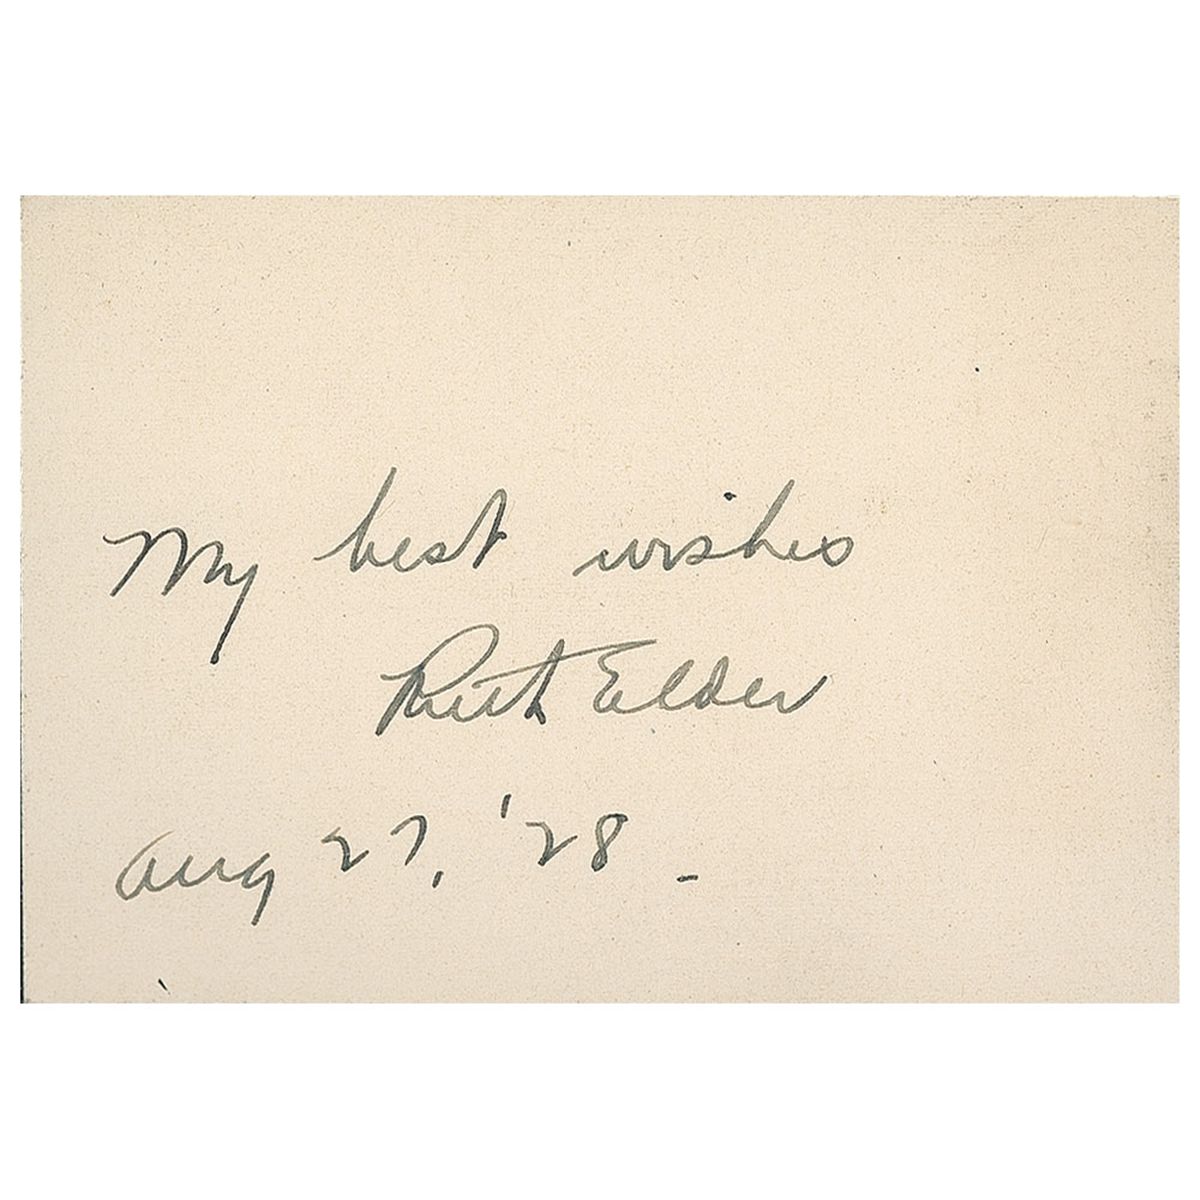 My best wishes
Ruth Elder
Aug 27, '28.